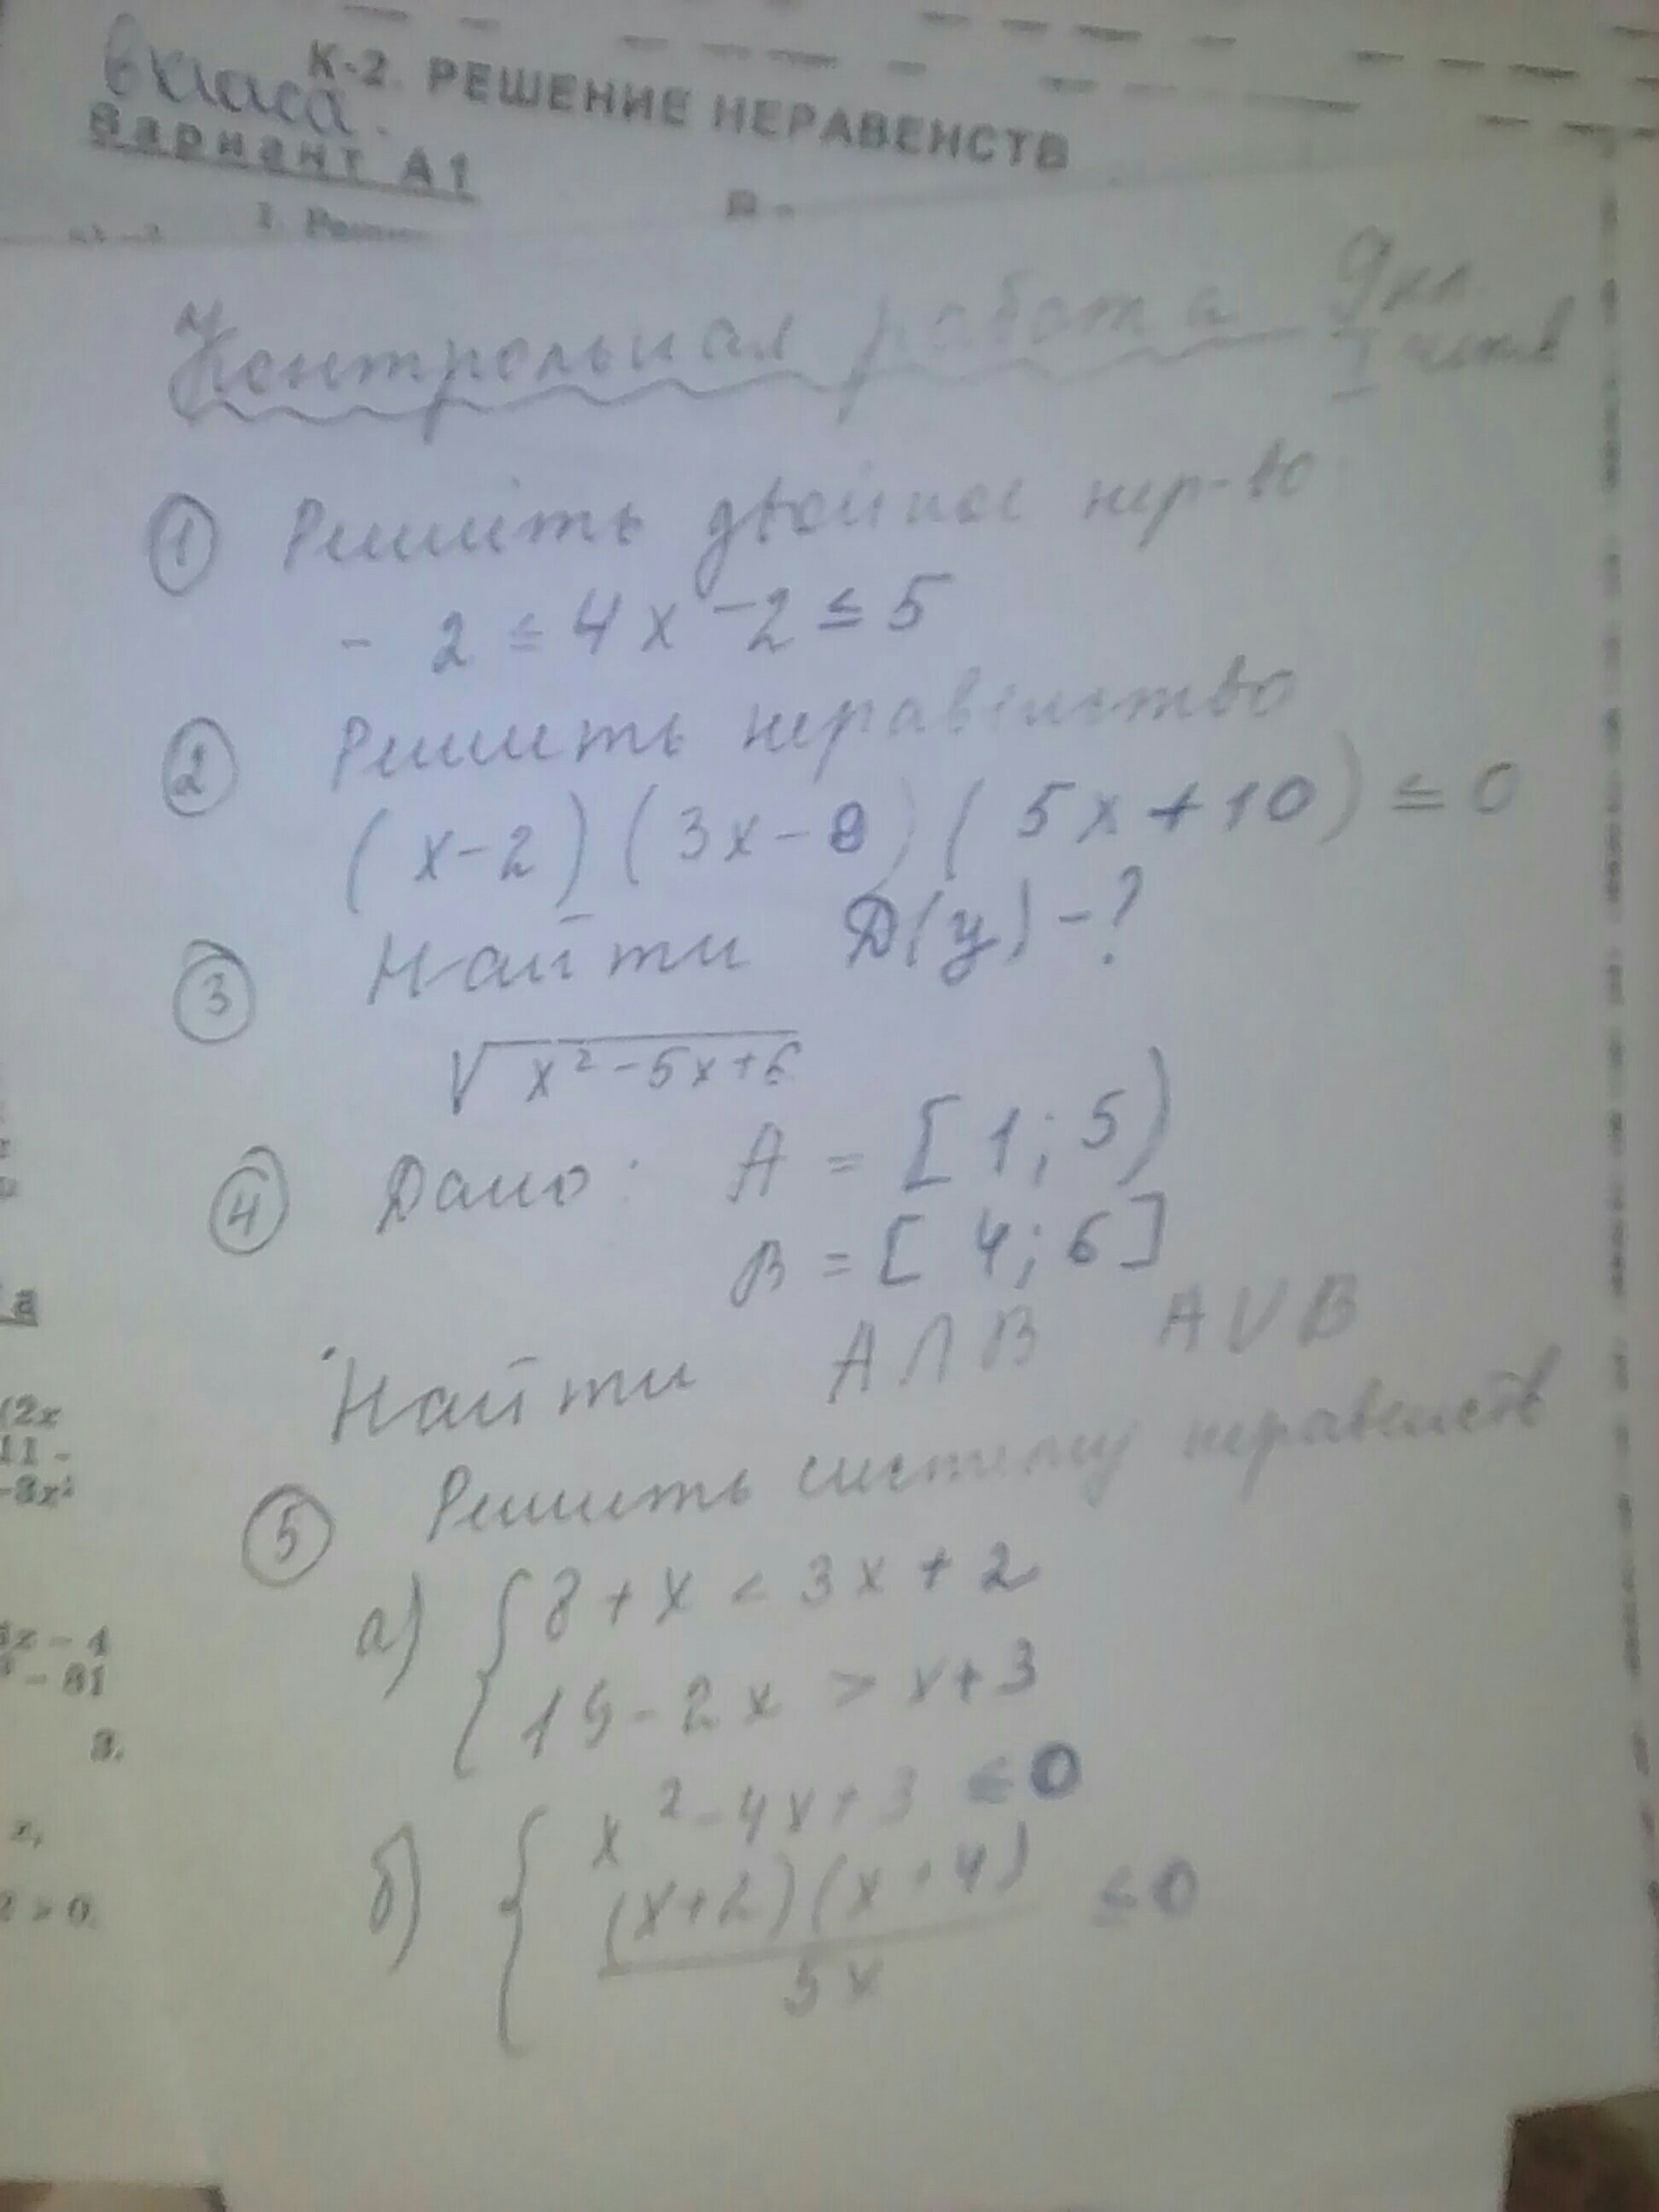 К-2. РЕШЕНИЕ НЕРАВЕНСТВ
Вариант А1
Контрольная работа 9 кл.
I четв
① Решить двойное нер-во
- 2 ≤ 4x - 2 ≤ 5
② Решить неравенство
(x-2)(3x-8)(5x+10) ≤ 0
③ Найти Д(y) - ?
√x²-5x+6
④ Дано: A = [1; 5)
B = [4; 6]
Найти A∩B A∪B
⑤ Решить систему неравенств
а) { 8 + x < 3x + 2
15 - 2x > x + 3
б) { x² - 4x + 3 ≤ 0
(x+2)(x+4) / 5x ≤ 0
(2x
11 -
-3x²
x - 4
- 81
3.
x,
> 0.